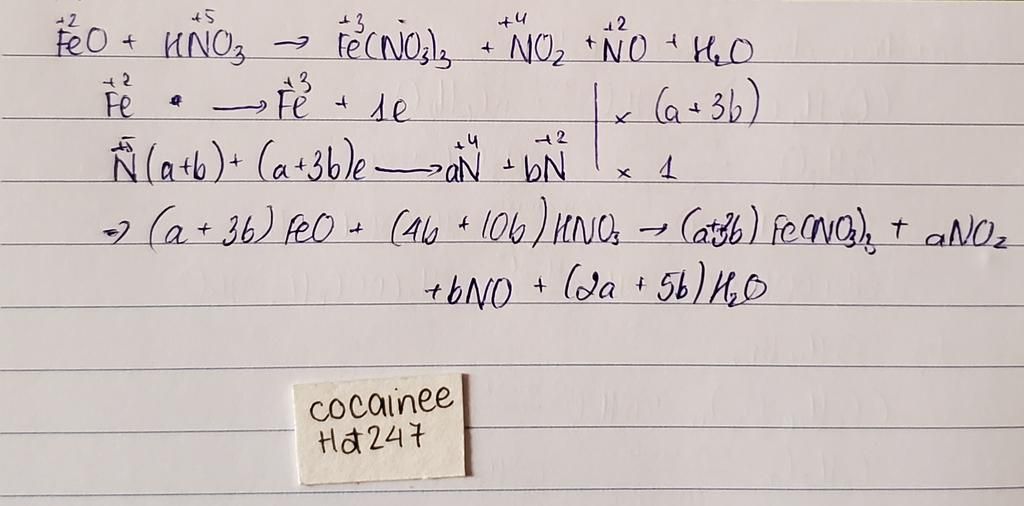 +2 +5 +3 +4 +2
FeO + HNO₃ → Fe(NO₃)₃ + NO₂ + NO + H₂O
+2 +3
Fe → Fe + 1e | × (a + 3b)
+5 +4 +2
N(a+b) + (a+3b)e → aN + bN | × 1
⇒ (a + 3b) FeO + (4b + 10b) HNO₃ → (a+3b) Fe(NO₃)₃ + aNO₂
+ bNO + (2a + 5b) H₂O
cocainee
Hat247